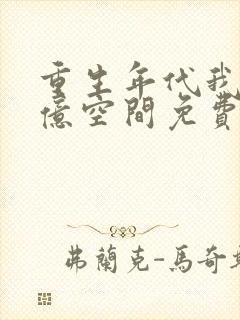 重生年代我
億空間免費
弗蘭克-馬奇